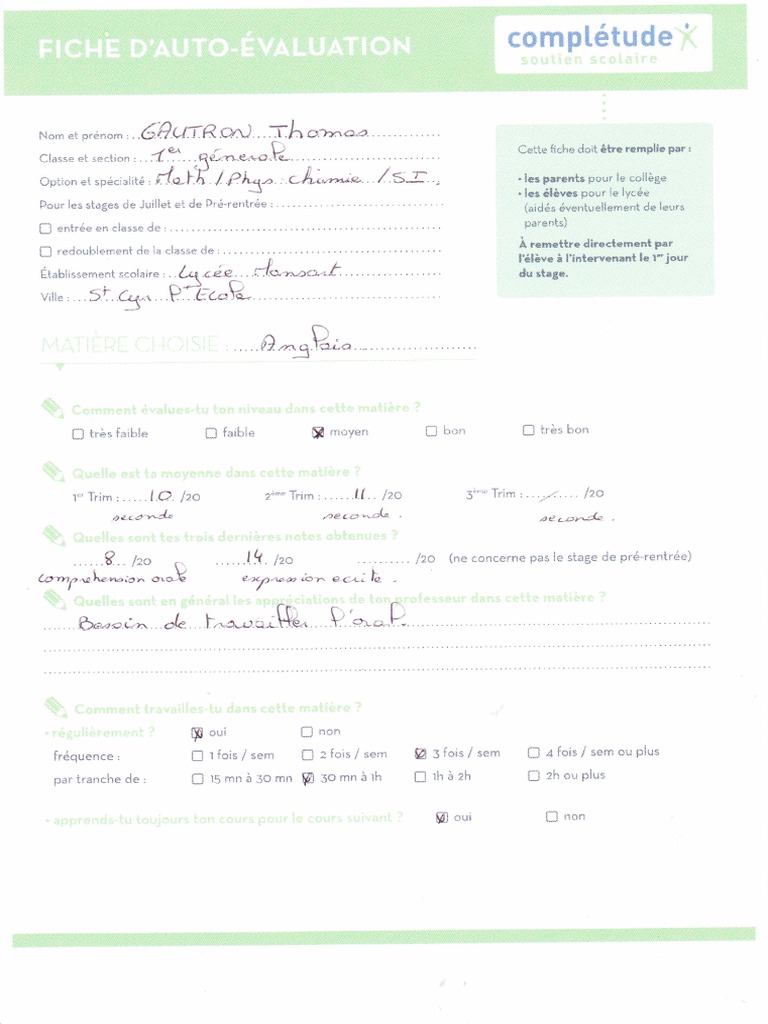 FICHE D'AUTO-ÉVALUATION
complétude
soutien scolaire
Nom et prénom : GAUTRON Thomas
Classe et section : 1er générale
Option et spécialité : Math / Phys. Chimie / SI.
Pour les stages de Juillet et de Pré-rentrée :
entrée en classe de :
redoublement de la classe de :
Établissement scolaire : Lycée Mansart
Ville : St Cyr l'Ecole
Cette fiche doit être remplie par :
• les parents pour le collège
• les élèves pour le lycée
(aidés éventuellement de leurs
parents)
À remettre directement par
l'élève à l'intervenant le 1er jour
du stage.
MATIÈRE CHOISIE : Anglais
Comment évalues-tu ton niveau dans cette matière ?
très faible faible moyen bon très bon
Quelle est ta moyenne dans cette matière ?
1er Trim : 10 /20 2ème Trim : 11 /20 3ème Trim : / /20
seconde seconde. seconde.
Quelles sont tes trois dernières notes obtenues ?
8 /20 14 /20 /20 (ne concerne pas le stage de pré-rentrée)
comprehension orale expression ecrite.
Quelles sont en général les appréciations de ton professeur dans cette matière ?
Besoin de travailler l'oral.
Comment travailles-tu dans cette matière ?
• régulièrement ? oui non
fréquence : 1 fois / sem 2 fois / sem 3 fois / sem 4 fois / sem ou plus
par tranche de : 15 mn à 30 mn 30 mn à 1h 1h à 2h 2h ou plus
• apprends-tu toujours ton cours pour le cours suivant ? oui non